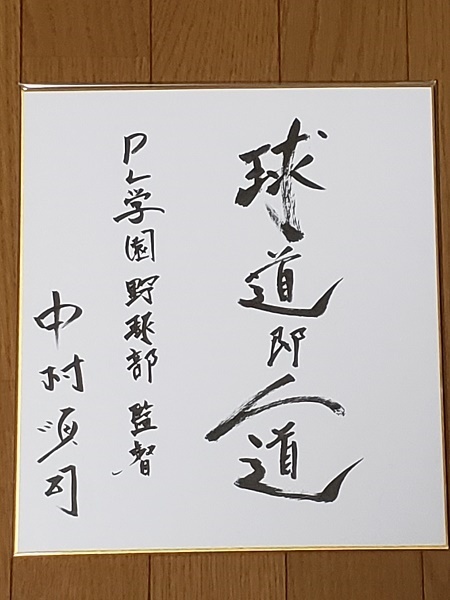 球道即人道
PL学園野球部 監督
中村順司